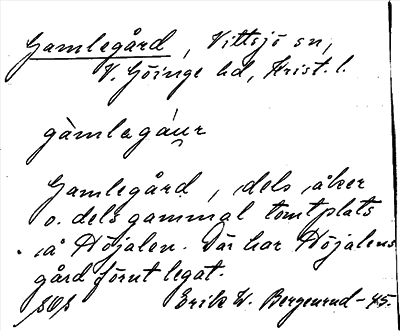 Gamlegård, Vittsjö sn,
V. Göinge hd, Krist. l.
gàmlagáur
Gamlegård, dels åker
o. dels gammal tomtplats
å Höjalen. Där har Höjalens
gård förut legat.
Erik W. Bergenrud -45.